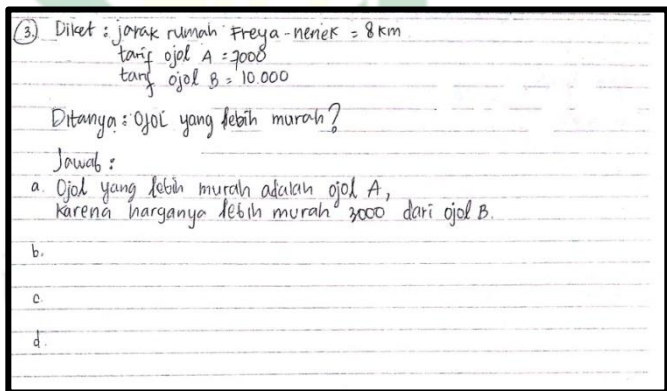 3. Diket : jarak rumah Freya - nenek = 8 km
tarif ojol A = 7000
tarif ojol B = 10.000
Ditanya : Ojol yang lebih murah?
Jawab :
a. Ojol yang lebih murah adalah ojol A,
karena harganya lebih murah 3000 dari ojol B.
b.
c.
d.